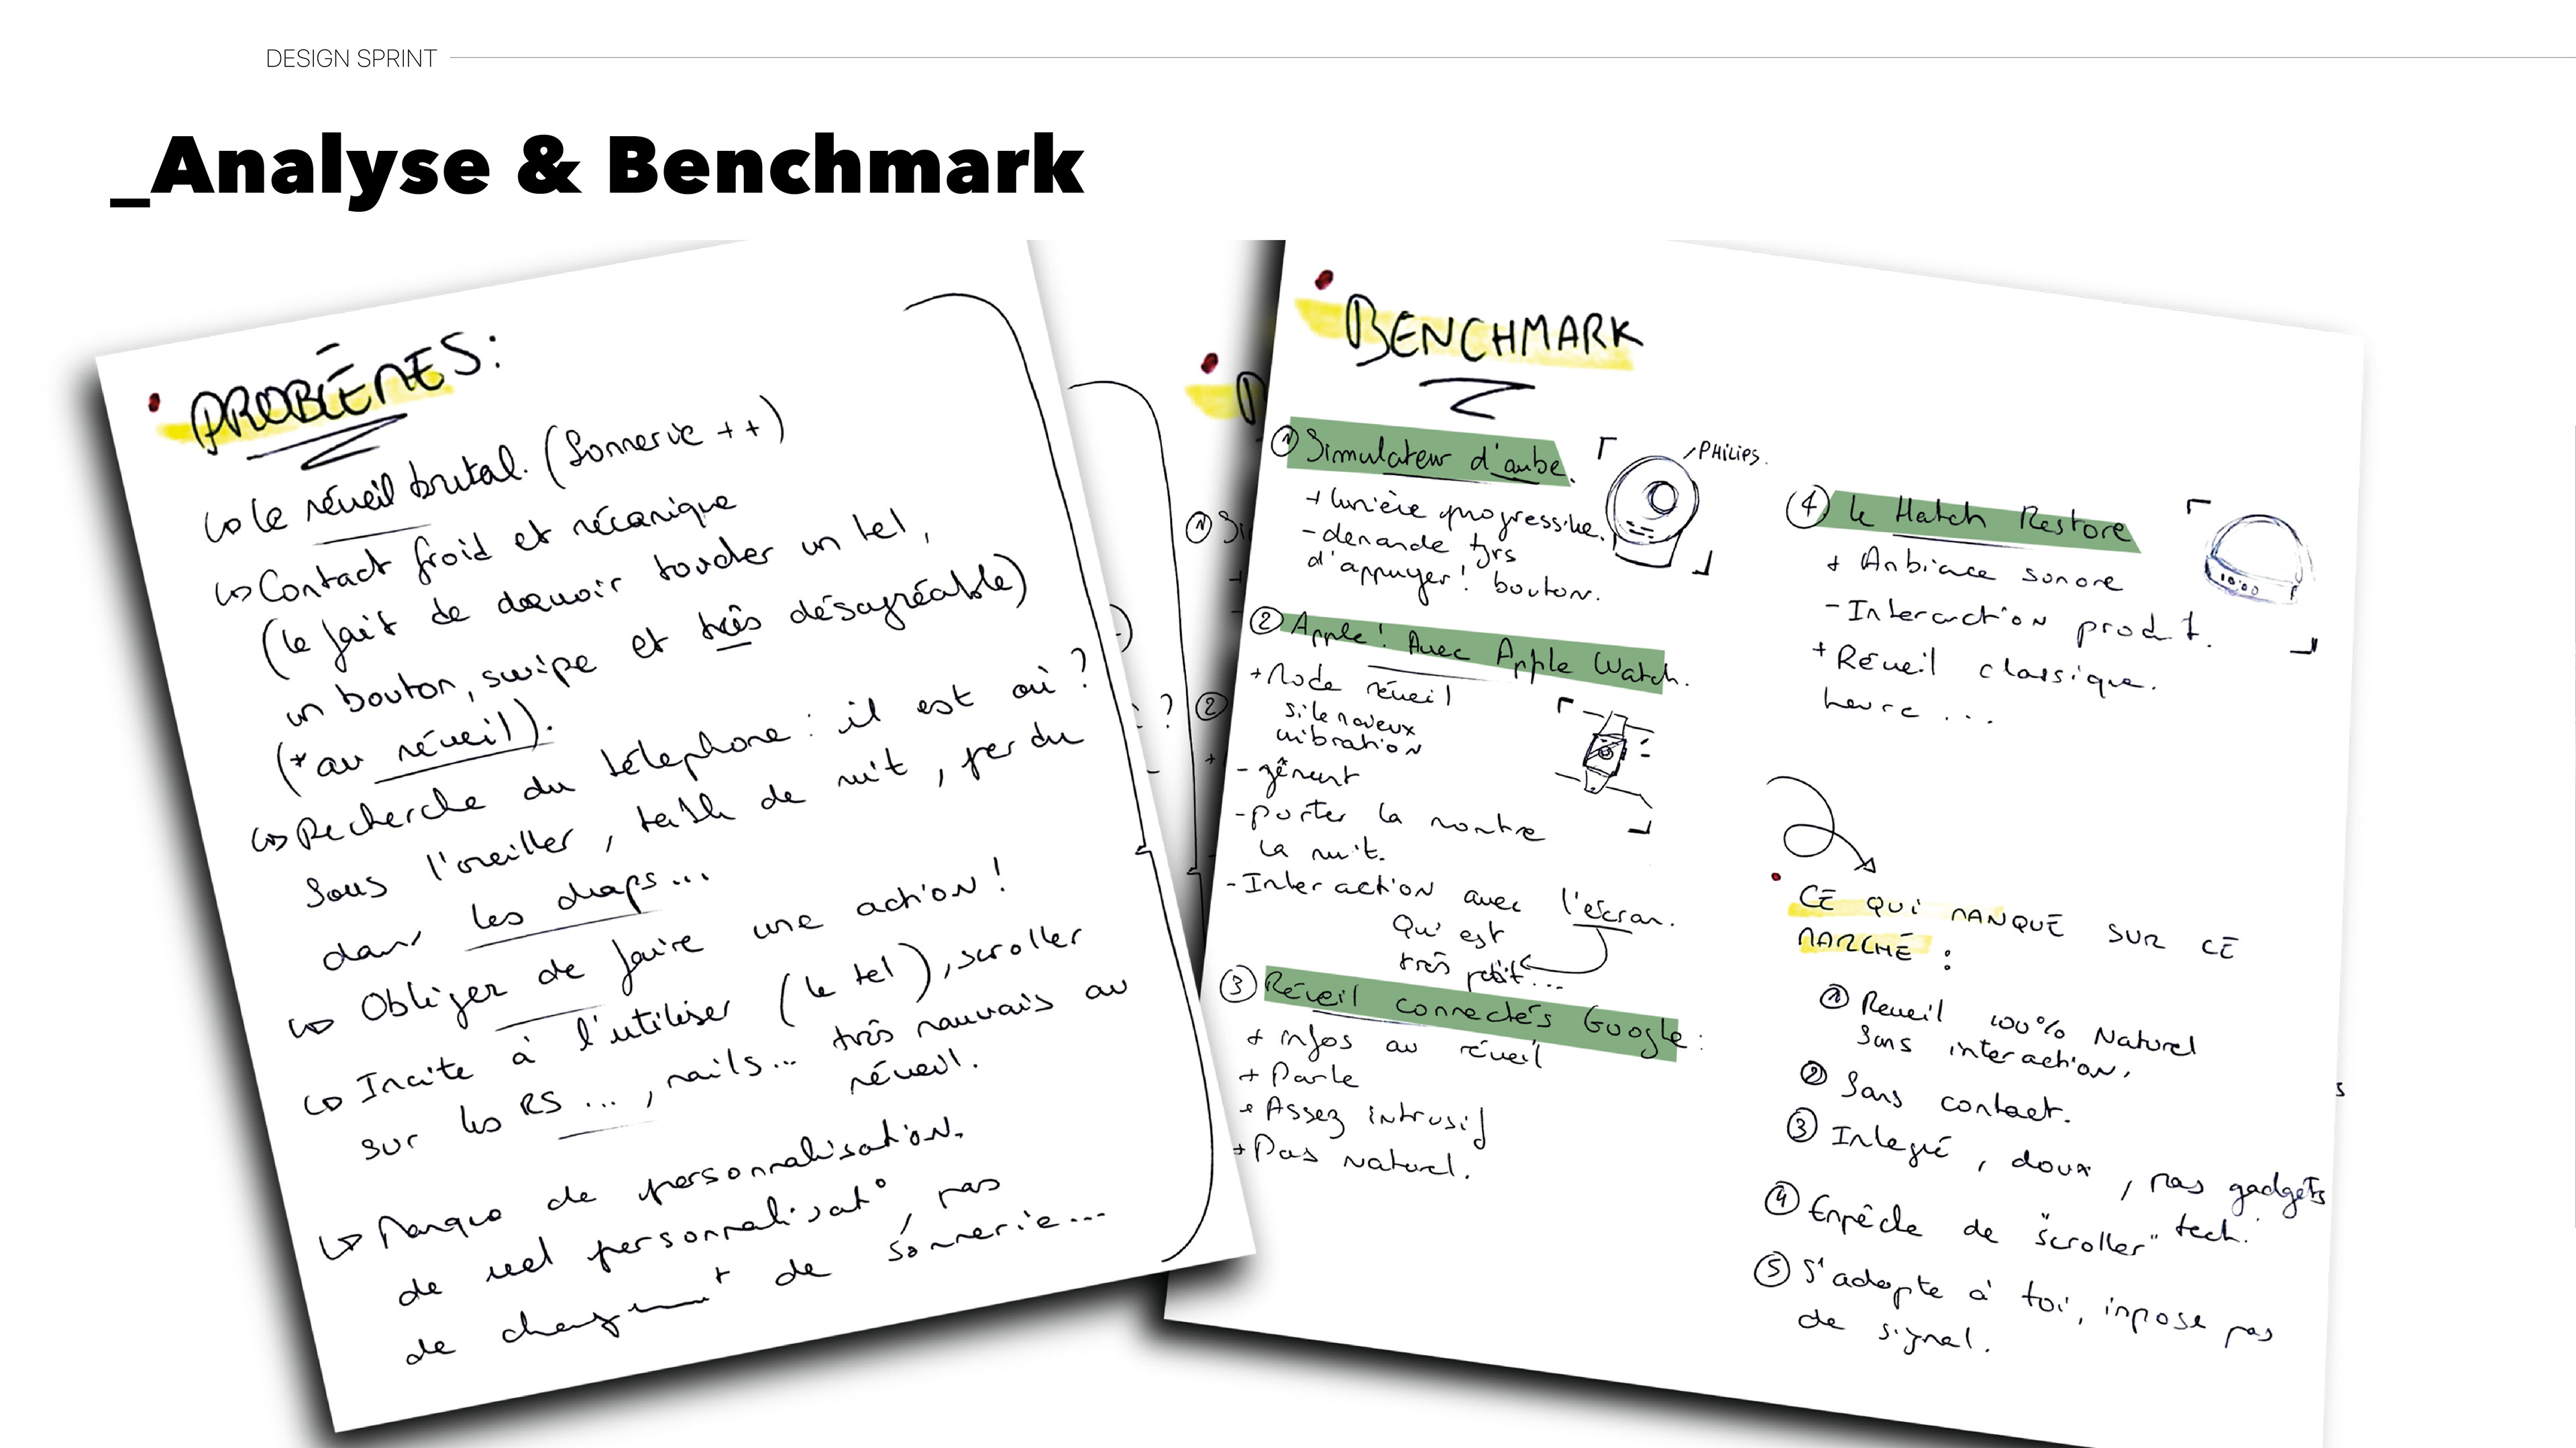 DESIGN SPRINT
_Analyse & Benchmark
PROBLÈMES:
le réveil brutal. (Sonnerie ++)
Contact froid et mécanique
(le fait de devoir toucher un tel,
un bouton, swipe et très désagréable)
(*au réveil).
Recherche du téléphone : il est où ?
Sous l'oreiller, table de nuit, perdu
dans les draps...
Obliger de faire une action !
Incite à l'utiliser (le tel), scroller
sur les RS ..., mails... très mauvais au
réveil.
Manque de personnalisation.
de réel personnalisat°, pas
de changemt de sonnerie...
BENCHMARK
① Simulateur d'aube.
PHILIPS.
+ lumière progressive.
- demande tjrs
d'appuyer ! bouton.
② Apple ! Avec Apple Watch.
+ Mode réveil
silencieux
vibration
- gênant
- porter la montre
la nuit.
- Interaction avec l'écran.
Qui est
très petit...
③ Réveil connectés Google :
+ infos au réveil
+ Parle
+ Assez intrusif
+ Pas naturel.
④ le Hatch Restore
+ Ambiance sonore
- Interaction produit.
+ Réveil classique.
heure ...
10:00
CE QUI MANQUE SUR CE
MARCHÉ :
① Reveil 100% Naturel
Sans interaction.
② Sans contact.
③ Intégré, doux, pas gadgets
tech.
④ Empêche de "scroller"
⑤ S'adapte à toi, impose pas
de signal.